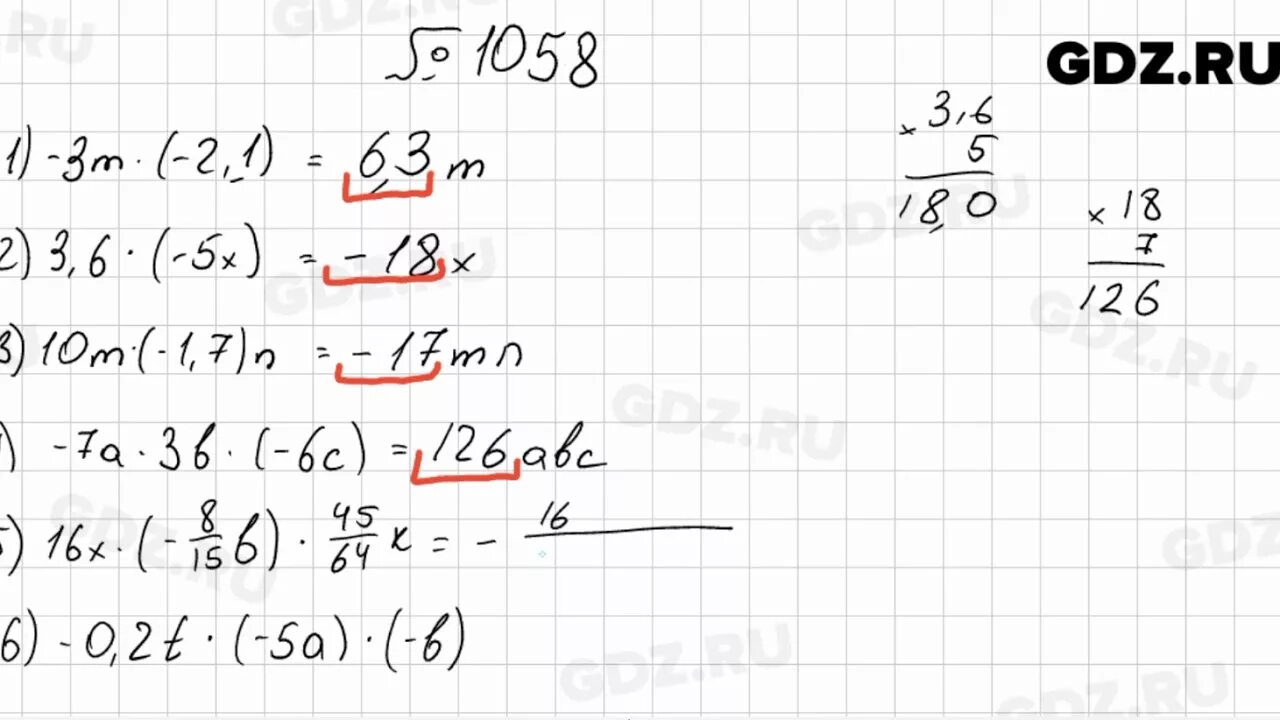 № 1058
GDZ.RU
1) -3m · (-2,1) = 6,3 m
2) 3,6 · (-5x) = -18 x
3) 10m · (-1,7)n = -17 m n
) -7a · 3b · (-6c) = 126 abc
5) 16x · (-8/15 b) · 45/64 k = - 16
6) -0,2t · (-5a) · (-b)
× 3,6
5
18,0
× 18
7
126